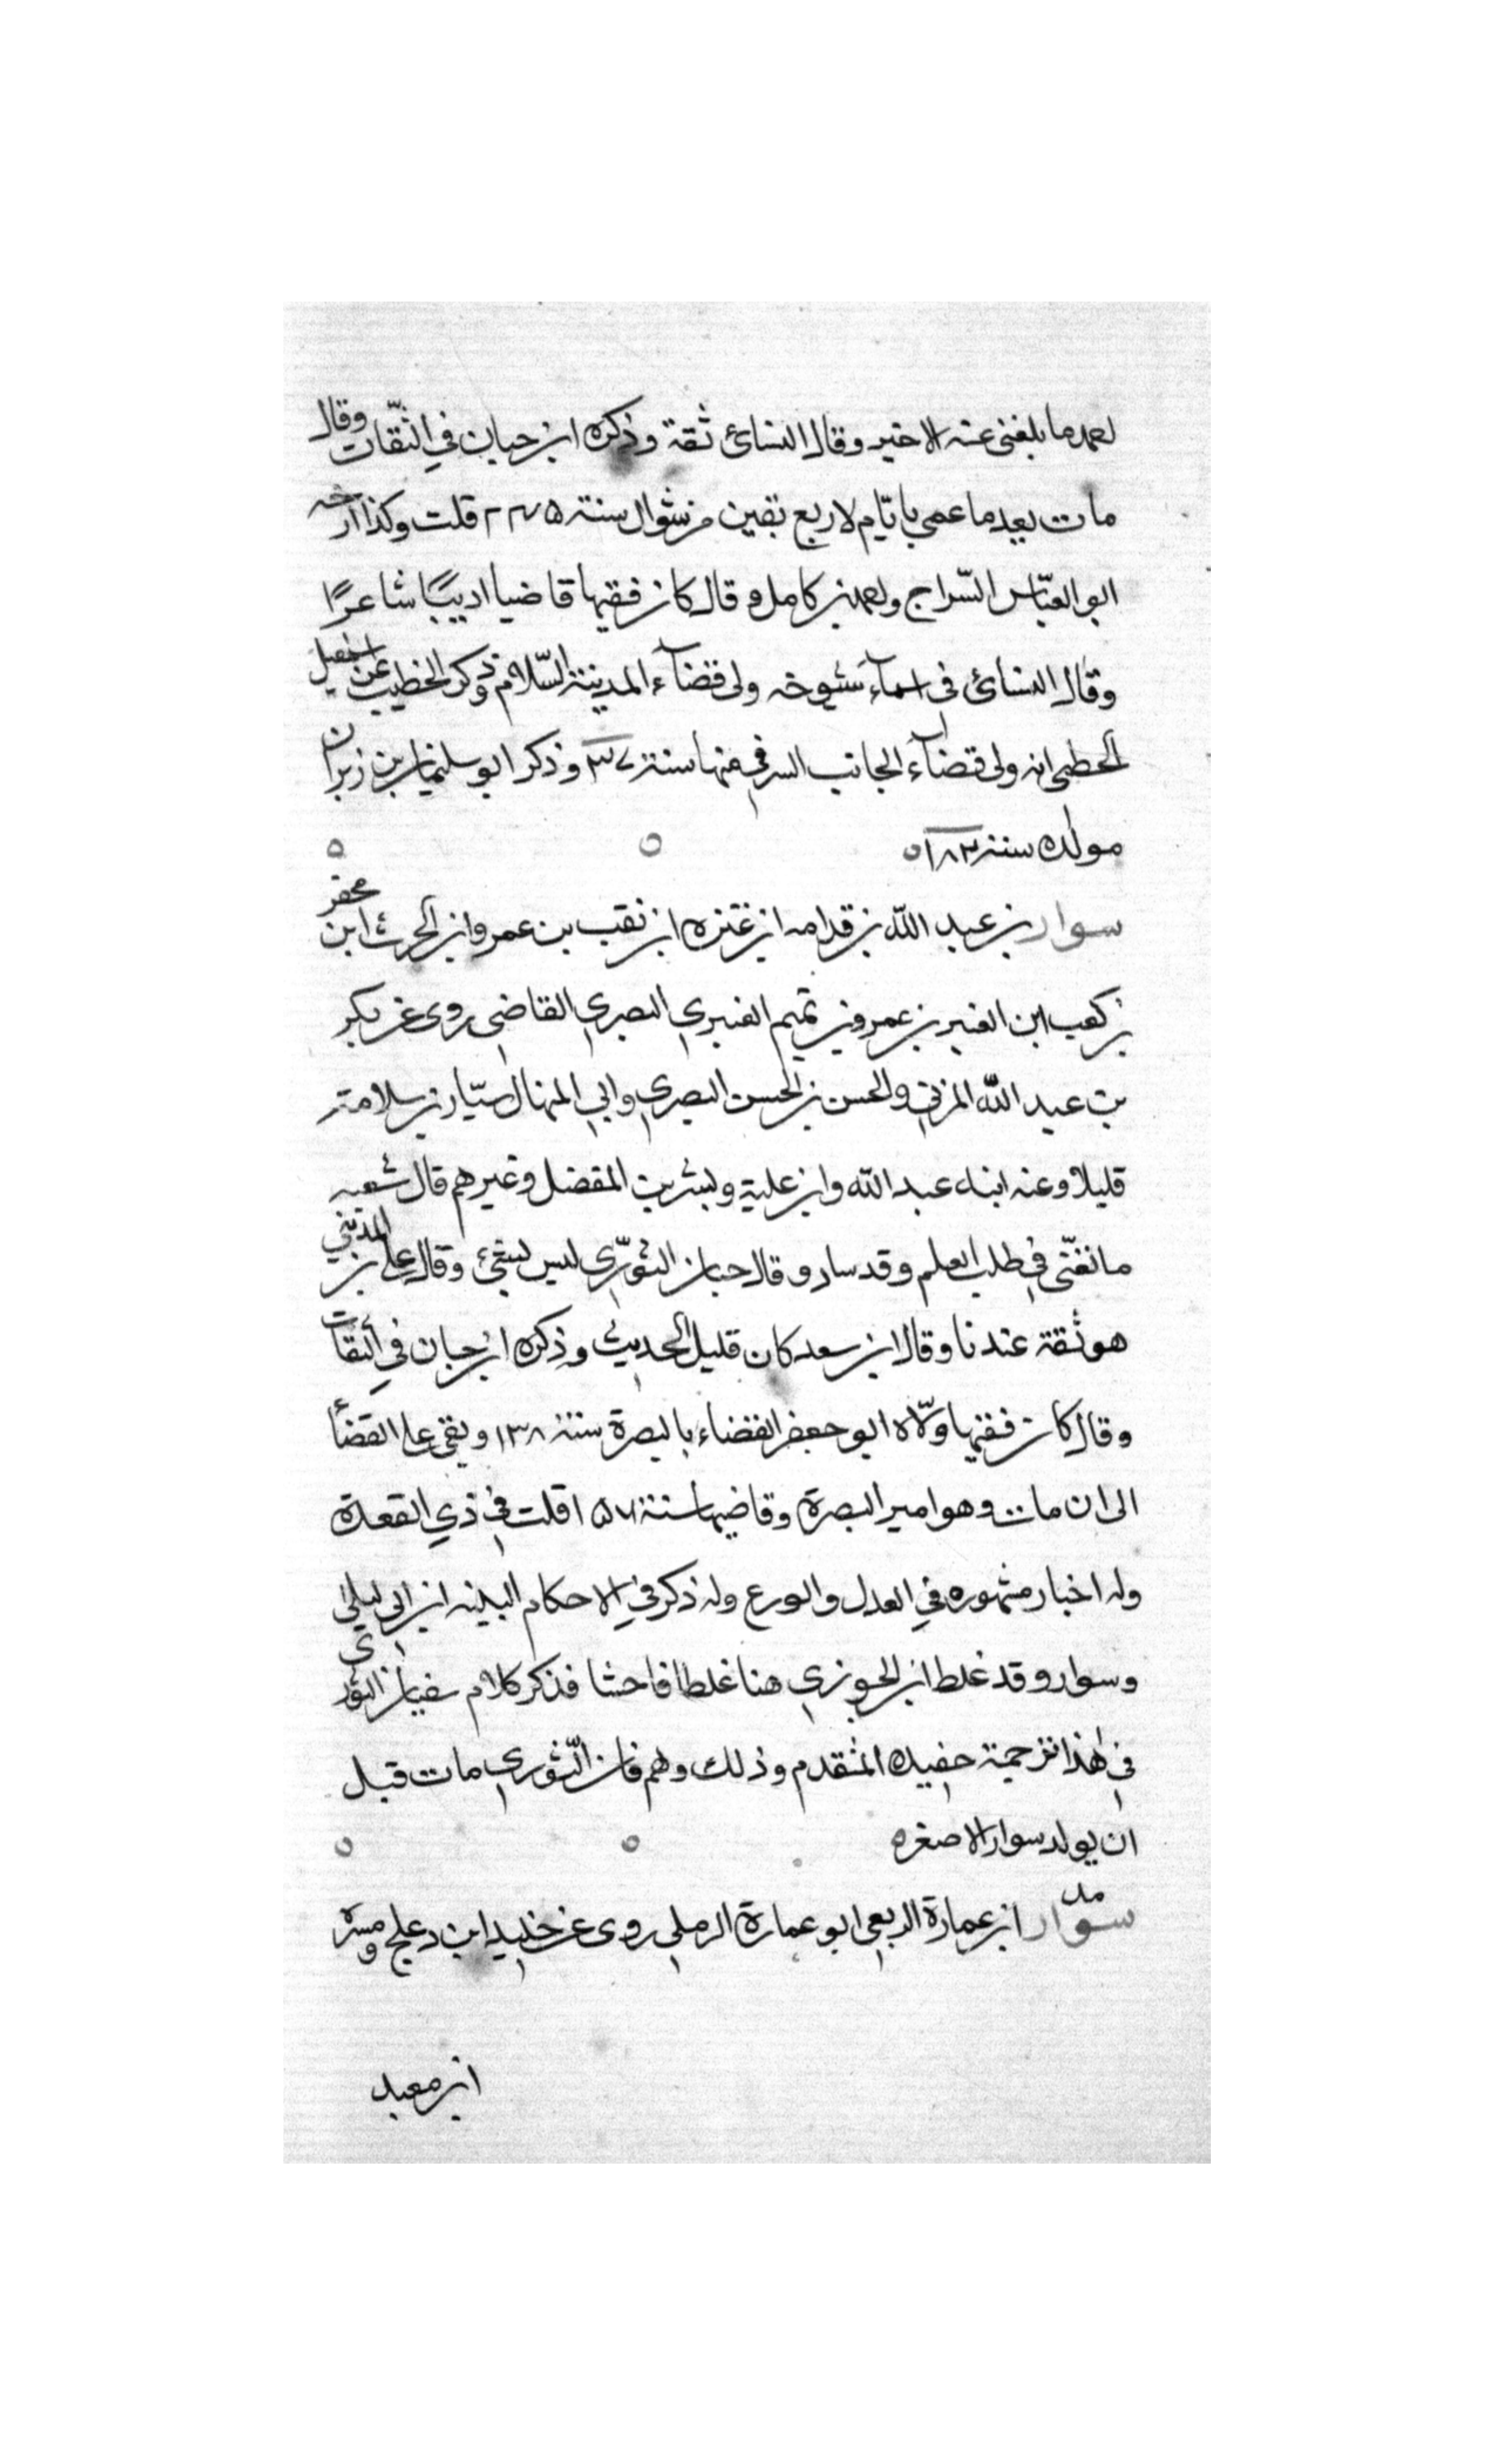 احمد ما بلغني عنه الاخير وقال النسائ ثقة وذكره ابن حبان في الثقات وقال
مات بعد ما عمي بايام لاربع بقين من شوال سنة ٢٤٥ قلت وكذا ارخه
ابو العباس السراج واحمد بن كامل وقال كان فقيها قاضيا اديبًا شاعرًا
وقال النسائ في اسمآء شيوخه ولى قضآء المدينة السلام وذكر الخطيب عن اسمعيل
الخطبى انه ولى قضآء الجانب الشرقي منها سنة ٣٧ وذكر ابو سليمان بن زبر ان
مولده سنة ١٨٢
سوار بن عبد الله بن قدامه ابن عنزه ابن نقب بن عمرو ابن الحرث ابن
بن كعب ابن العنبر بن عمرو بن تميم العنبري البصري القاضي روى عن بكر
بن عبد الله المزني والحسن بن الحسن البصري وابي المنهال سيار بن سلامة
قليلا وعنه ابنه عبد الله وابن علية وبشر بن المفضل وغيرهم قال شعبه
ما تعنى في طلب العلم وقد ساد وقال حبان الثوري ليس بشئ وقال علي بن المديني
هو ثقة عندنا وقال ابن سعد كان قليل الحديث وذكره ابن حبان في الثقات
وقال كان فقيها ولاه ابو جعفر القضاء بالبصرة سنة ١٣٨ وبقى على القضأ
الى ان مات وهو امير البصرة وقاضيها سنة ١٥٧ قلت في ذي القعدة
وله اخبار مشهوره في العدل والورع وله ذكر في الاحكام البينه ابن ابي ليلى
وسوار وقد غلط ابن الجوزي هنا غلطا فاحشا فذكر كلام سفيان الثوري
في هذا ترجمة حفيده المتقدم وذلك وهم فان الثوري مات قبل
ان يولد سوار الاصغر
سوار ابن عمارة الربعي ابو عمارة الرملي روى عن خليد ابن دعلج ومسرة
ابن معبد